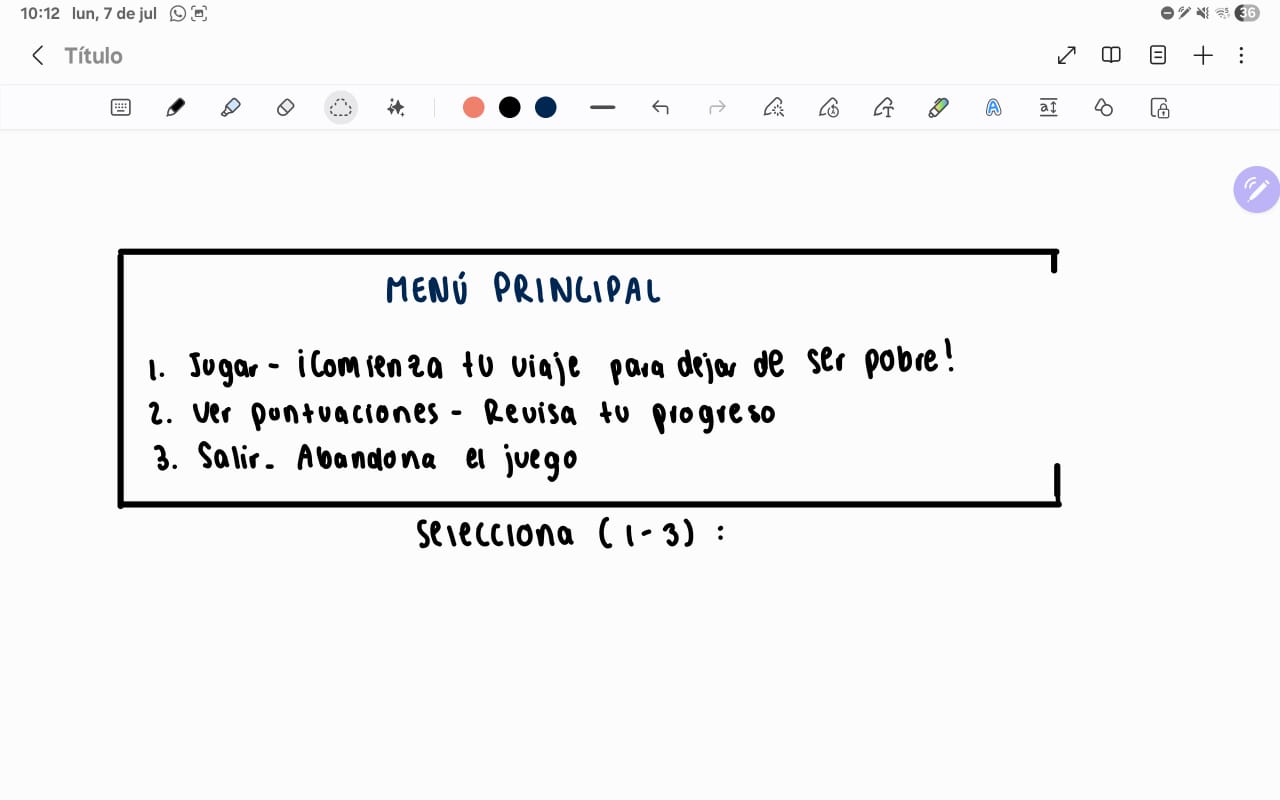 10:12 lun, 7 de jul
36
Título
MENÚ PRINCIPAL
1. Jugar - ¡Comienza tu viaje para dejar de ser pobre!
2. Ver puntuaciones - Revisa tu progreso
3. Salir - Abandona el juego
Selecciona (1-3) :